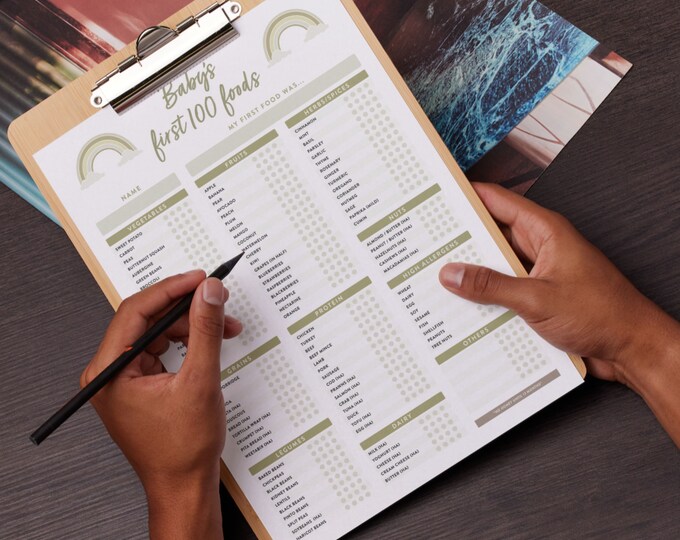 Baby's
first 100 foods
MY FIRST FOOD WAS...
NAME
VEGETABLES
SWEET POTATO
CARROT
PEAS
BUTTERNUT SQUASH
AUBERGINE
GREEN BEANS
BROCCOLI
FRUITS
APPLE
BANANA
PEAR
AVOCADO
PEACH
PLUM
MELON
MANGO
COCONUT
WATERMELON
CHERRY
KIWI
GRAPES (IN HALF)
BLUEBERRIES
STRAWBERRIES
RASPBERRIES
BLACKBERRIES
PINEAPPLE
ORANGE
HERBS/SPICES
CINNAMON
MINT
BASIL
PARSLEY
GARLIC
THYME
ROSEMARY
GINGER
TURMERIC
OREGANO
CORIANDER
NUTMEG
SAGE
PAPRIKA (MILD)
CUMIN
NUTS
ALMOND / BUTTER (HA)
PEANUT / BUTTER (HA)
HAZELNUTS (HA)
CASHEWS (HA)
MACADAMIA (HA)
HIGH ALLERGENS
WHEAT
DAIRY
EGG
SOY
SESAME
FISH
SHELLFISH
PEANUTS
TREE NUTS
OTHERS
PROTEIN
CHICKEN
TURKEY
BEEF
BEEF MINCE
LAMB
PORK
SAUSAGE
COD (HA)
PRAWNS (HA)
SALMON (HA)
CRAB (HA)
TUNA (HA)
DUCK
TOFU (HA)
EGG (HA)
GRAINS
PORRIDGE
COUSCOUS
BREAD (HA)
TORTILLA WRAP (HA)
CRUMPET (HA)
PITA BREAD (HA)
WEETABIX (HA)
LEGUMES
BAKED BEANS
CHICKPEAS
BLACK BEANS
KIDNEY BEANS
LENTILS
BLACK BEANS
PINTO BEANS
SPLIT PEAS
SOYBEANS (HA)
HARICOT BEANS
DAIRY
MILK (HA)
YOGHURT (HA)
CHEESE (HA)
CREAM CHEESE (HA)
BUTTER (HA)